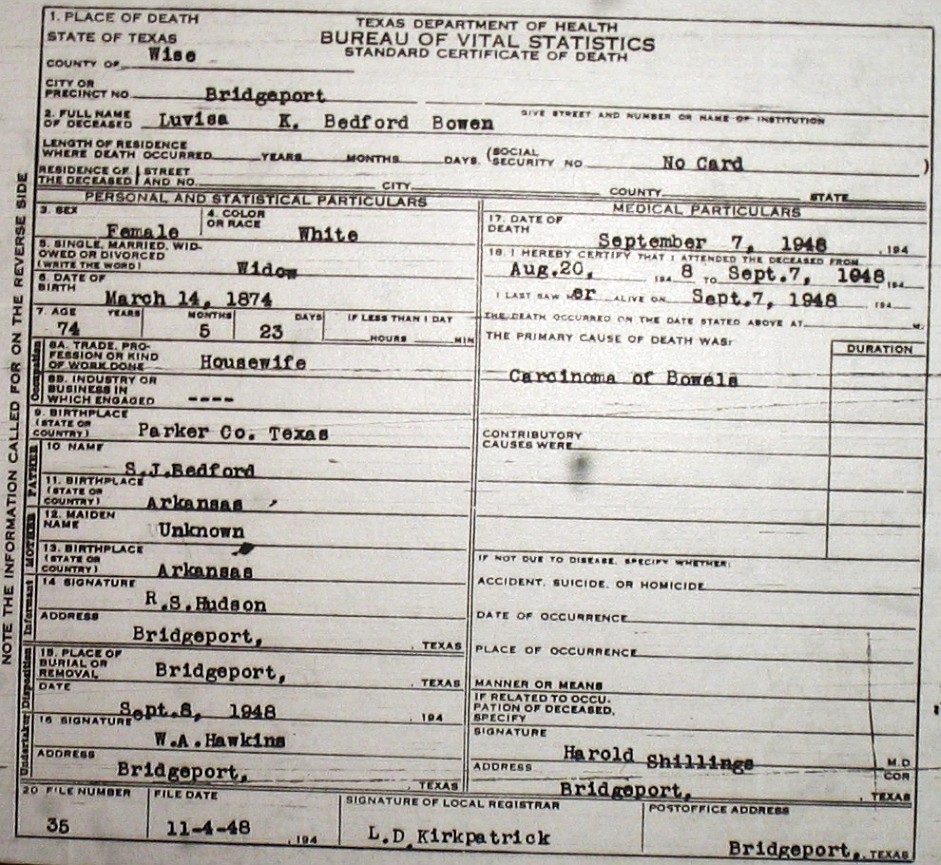 1. PLACE OF DEATH
STATE OF TEXAS
COUNTY OF Wise
TEXAS DEPARTMENT OF HEALTH
BUREAU OF VITAL STATISTICS
STANDARD CERTIFICATE OF DEATH
CITY OR
PRECINCT NO. Bridgeport
GIVE STREET AND NUMBER OR NAME OF INSTITUTION
2. FULL NAME
OF DECEASED Luvisa K. Bedford Bowen
LENGTH OF RESIDENCE
WHERE DEATH OCCURRED YEARS MONTHS DAYS. (SOCIAL
SECURITY NO. No Card )
RESIDENCE OF STREET
THE DECEASED AND NO. CITY COUNTY STATE
PERSONAL AND STATISTICAL PARTICULARS
3. SEX Female
4. COLOR
OR RACE White
5. SINGLE, MARRIED, WID-
OWED OR DIVORCED
(WRITE THE WORD) Widow
6. DATE OF
BIRTH March 14, 1874
7. AGE YEARS MONTHS DAYS IF LESS THAN 1 DAY
74 5 23 HOURS MIN
Occupation
8A. TRADE, PRO-
FESSION OR KIND
OF WORK DONE Housewife
8B. INDUSTRY OR
BUSINESS IN
WHICH ENGAGED ----
9. BIRTHPLACE
(STATE OR
COUNTRY) Parker Co. Texas
FATHER
10 NAME S.J.Bedford
11. BIRTHPLACE
(STATE OR
COUNTRY) Arkansas
MOTHER
12. MAIDEN
NAME Unknown
13. BIRTHPLACE
(STATE OR
COUNTRY) Arkansas
Informant
14 SIGNATURE
R.S.Hudson
ADDRESS
Bridgeport, , TEXAS
Disposition
15. PLACE OF
BURIAL OR
REMOVAL Bridgeport, , TEXAS
DATE
Sept.8, 1948 , 194
Undertaker
16 SIGNATURE
W.A.Hawkins
ADDRESS
Bridgeport, , TEXAS
MEDICAL PARTICULARS
17. DATE OF
DEATH September 7, 1948 , 194
18. I HEREBY CERTIFY THAT I ATTENDED THE DECEASED FROM
Aug.20, 194 8 TO Sept.7, 1948 194
I LAST SAW H er ALIVE ON Sept.7, 1948 194
THE DEATH OCCURRED ON THE DATE STATED ABOVE AT M.
THE PRIMARY CAUSE OF DEATH WAS: DURATION
Carcinoma of Bowels
CONTRIBUTORY
CAUSES WERE
IF NOT DUE TO DISEASE, SPECIFY WHETHER:
ACCIDENT, SUICIDE, OR HOMICIDE
DATE OF OCCURRENCE
PLACE OF OCCURRENCE
MANNER OR MEANS
IF RELATED TO OCCU-
PATION OF DECEASED,
SPECIFY
SIGNATURE
Harold Shillings M.D
ADDRESS COR
Bridgeport, , TEXAS
20 FILE NUMBER FILE DATE SIGNATURE OF LOCAL REGISTRAR POSTOFFICE ADDRESS
35 11-4-48 , 194 L.D.Kirkpatrick Bridgeport, , TEXAS
NOTE THE INFORMATION CALLED FOR ON THE REVERSE SIDE